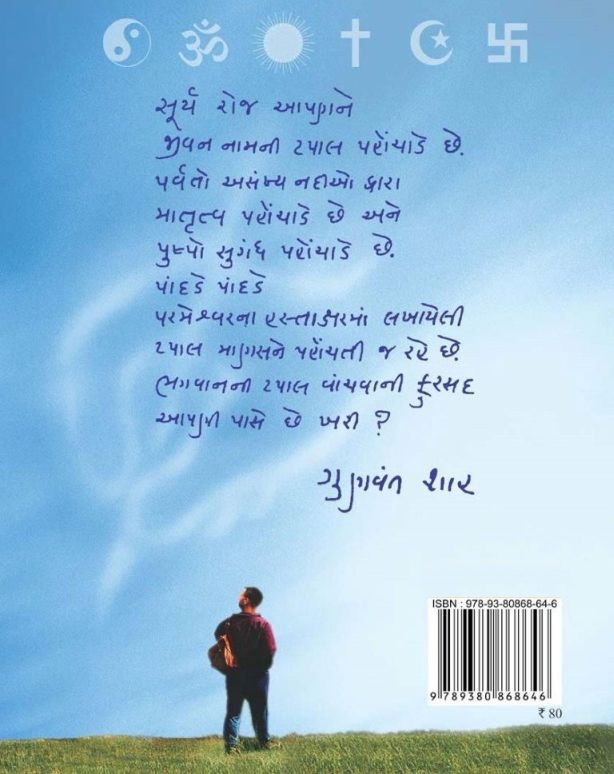 સૂર્ય રોજ આપણને
જીવન નામની ટપાલ પહોંચાડે છે.
પર્વતો અસંખ્ય નદીઓ દ્વારા
માતૃત્વ પહોંચાડે છે અને
પુષ્પો સુગંધ પહોંચાડે છે.
પાંદડે પાંદડે
પરમેશ્વરના હસ્તાક્ષરમાં લખાયેલી
ટપાલ માણસને પહોંચતી જ રહે છે.
ભગવાનની ટપાલ વાંચવાની ફુરસદ
આપણી પાસે છે ખરી ?
ગુણવંત શાહ
ISBN : 978-93-80868-64-6
9 789380 868646
₹ 80